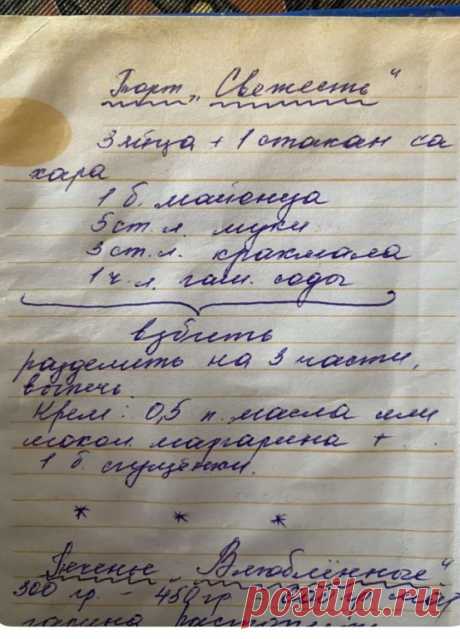 Торт „Свежесть"
3 яйца + 1 стакан са
хара
1 б. майонеза
5 ст. л. муки
3 ст. л. крахмала
1 ч. л. гаш. соды
взбить
разделить на 3 части,
выпечь.
Крем: 0,5 п. масла или
молоч. маргарина +
1 б. сгущёнки.
* * *
Печенье „Влюблённые"
300 гр. - 450 гр
гарина
postila.ru